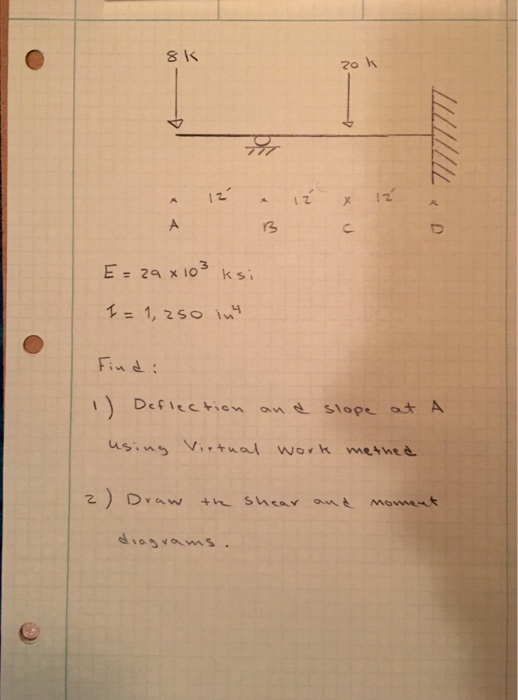 8 k
20 k
12' 12' 12'
A B C D
E = 29 x 10³ ksi
I = 1,250 in⁴
Find:
1) Deflection and slope at A
using Virtual work method
2) Draw the shear and moment
diagrams.